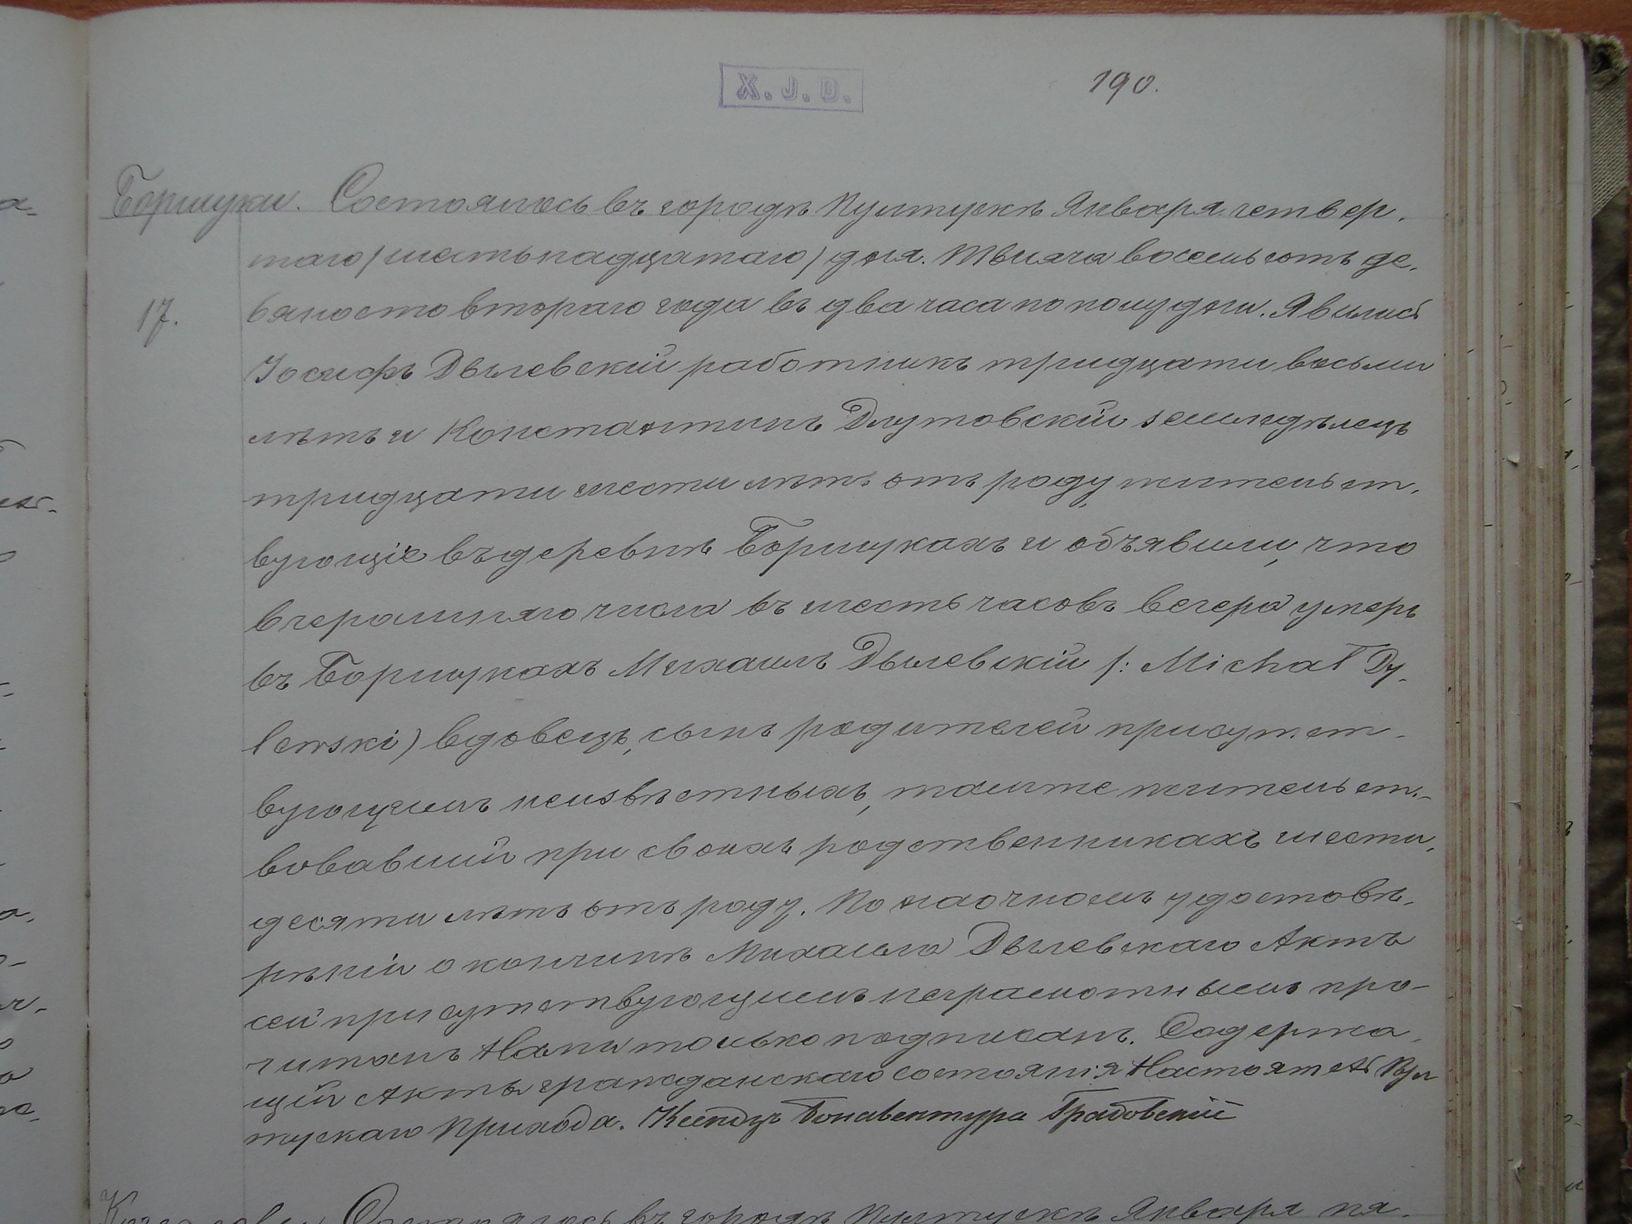 X. J. D.
190.
Борщуки. Состоялось въ городѣ Пултускѣ Января четвер-
таго (шестьнадцатаго) дня. Тысяча восемьсотъ де-
17. вяносто втораго года въ два часа по полудни. Явились
Іосифъ Дылевскій работникъ тридцати восьми
лѣтъ и Константинъ Длутовскій земледѣлецъ
тридцати шести лѣтъ отъ роду, жительст-
вующіе въ деревнѣ Борщукахъ и объявили, что
вчерашняго числа въ шесть часовъ вечера умеръ
въ Борщукахъ Михаилъ Дылевскій /: Michał Dy-
lewski) вдовецъ, сынъ родителей присутст-
вующимъ неизвѣстныхъ, тамже жительст-
вовавшій при своихъ родственникахъ шести-
десяти лѣтъ отъ роду. По наочномъ удостовѣ-
рѣніи о кончинѣ Михаила Дылевскаго Актъ
сей присутствующимъ неграмотнымъ про-
читанъ Нами только подписанъ. Содержа-
щій Акты гражданскаго состоянія Настоятель Пул-
тускаго Прихода. Ксендзъ Бонавентура Грабовскій
Состоялось въ городѣ Пултускѣ Января пя-